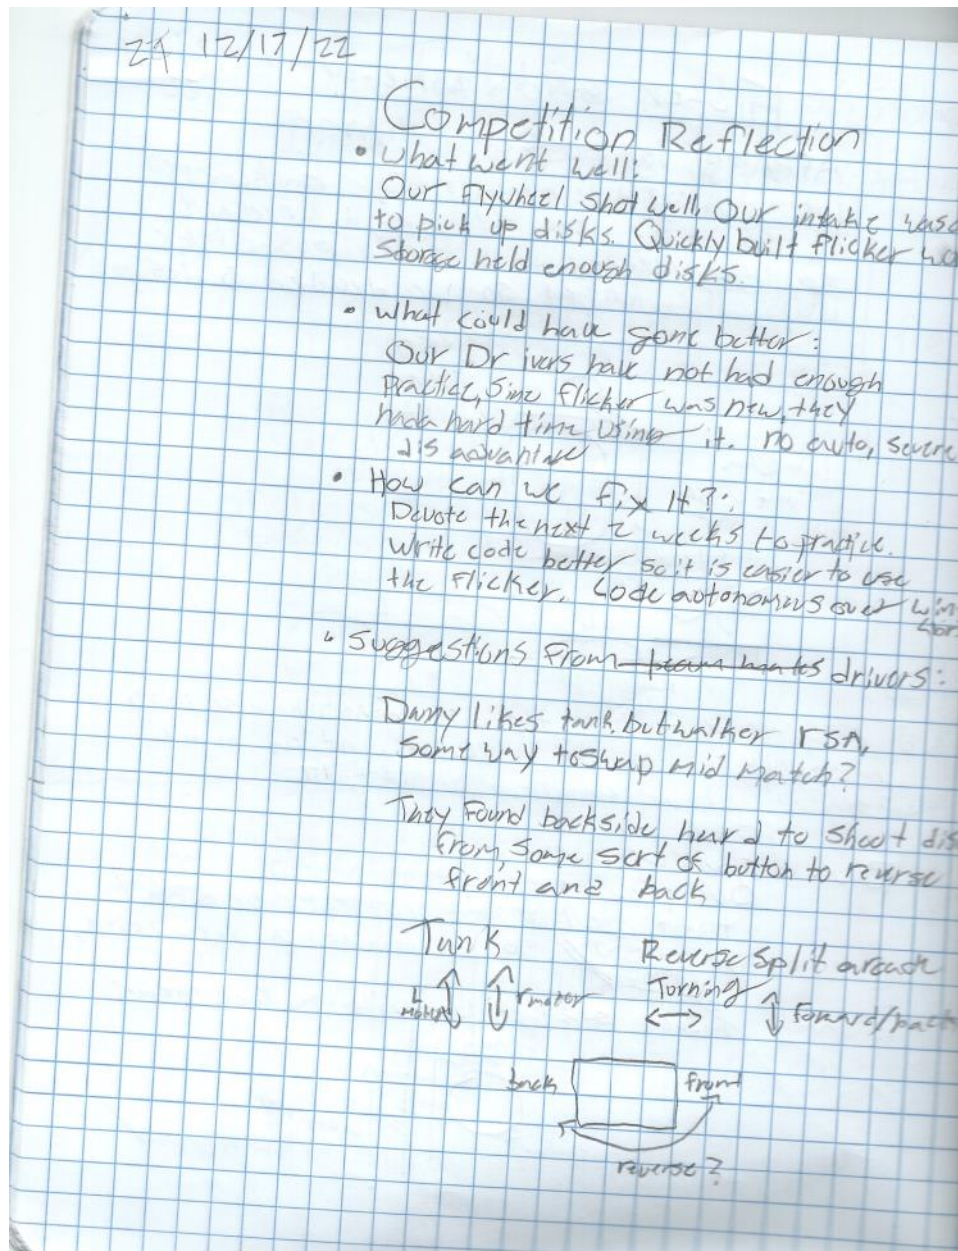 12/17/22
Competition Reflection
• What went well:
Our flywheel shot well, Our intake was
to pick up disks. Quickly built flicker
Storage held enough disks.
• What could have gone better:
Our Drivers have not had enough
Practice, Sinc flicker was new, they
had a hard time using it. no auto, severe
disadvantage
• How can we fix it?:
Devote the next 2 weeks to practice.
Write code better so it is easier to use
the flicker. Code autonomus over win
• Suggestions from team mates drivers:
Danny likes tank, but walker rSA,
Some way to swap mid match?
They found backside hard to shoot dis
from, some sort of button to reverse
front and back
Tank Reverse Split arcade
L motor r motor Torning Forward/back
back front
reverse?